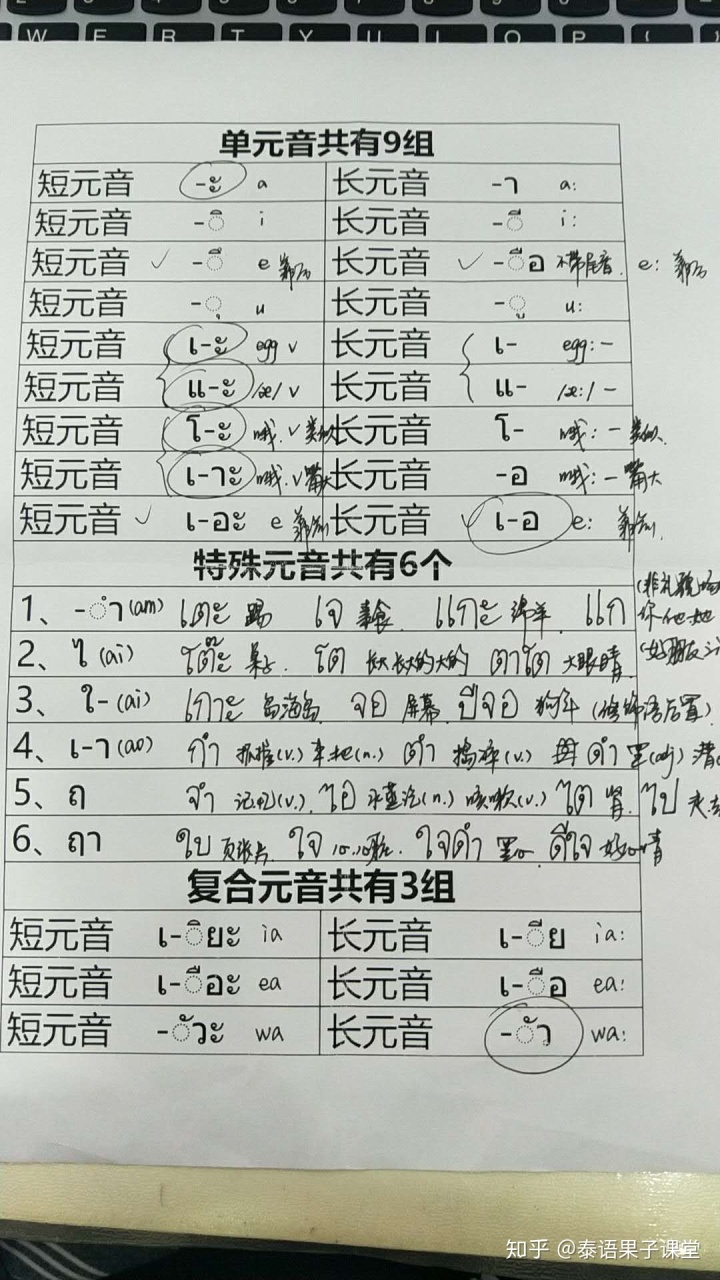 W E R T Y U I O P {
单元音共有9组
短元音 -ะ a 长元音 -า a:
短元音 -ิ i 长元音 -ี i:
短元音 ✓ -ึ e 长元音 ✓ -ือ 不带尾音. e:
短元音 -ุ u 长元音 -ู u:
短元音 เ-ะ egg v 长元音 เ- egg: –
短元音 แ-ะ /æ/ v 长元音 แ- /æ:/ –
短元音 โ-ะ 哦. v 类似 长元音 โ- 哦: – 类似.
短元音 เ-าะ 哦. v 嘴大 长元音 -อ 哦: – 嘴大
短元音 ✓ เ-อะ e 长元音 ✓ เ-อ e:
特殊元音共有6个
1、 -ำ (am) เตะ 踢 เจ 素食. แกะ 绵羊. แก
2、 ไ (ai) โต๊ะ 桌子. โต ตาโต 大眼睛.
3、 ใ- (ai) เกาะ 岛海岛 จอ 屏幕. ปีจอ 狗年 (修饰语后置)
4、 เ-า (ao) กำ ตำ 捣碎(v.) ดำ 黑(adj)
5、 ฤ จำ 记忆(v.). ไอ 水蒸汽(n.) 咳嗽(v.) ไต 肾. ไป
6、 ฤา ใบ ใจ ใจดำ ดีใจ
复合元音共有3组
短元音 เ-ียะ ia 长元音 เ-ีย ia:
短元音 เ-ือะ ea 长元音 เ-ือ ea:
短元音 -ัวะ wa 长元音 -ัว wa:
知乎 @泰语果子课堂